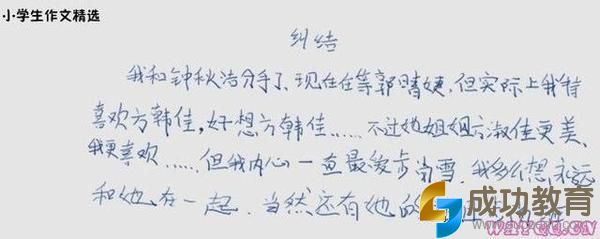 小学生作文精选
纠结
我和钟秋洁分手了、现在在等郭晴婕,但实际上我特
喜欢方韩佳,好想方韩佳……不过她姐姐方淑佳更美、
我更喜欢……但我内心一直最爱步尚雪.我多么想永远
和她在一起.当然还有她的
成功教育